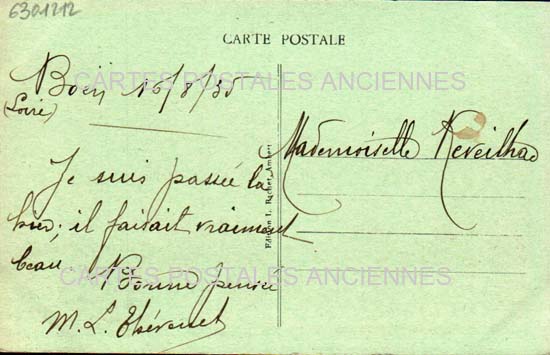 6301212
CARTE POSTALE
CARTES POSTALES ANCIENNES
Boën 16/8/35
(Loire)
Je suis passée là
hier; il faisait vraiment
beau. Bonne pensée
M. L. Thévenet
Edition L. Rochet, Ambert
Mademoiselle Reveilhac
CARTES POSTALES ANCIENNES